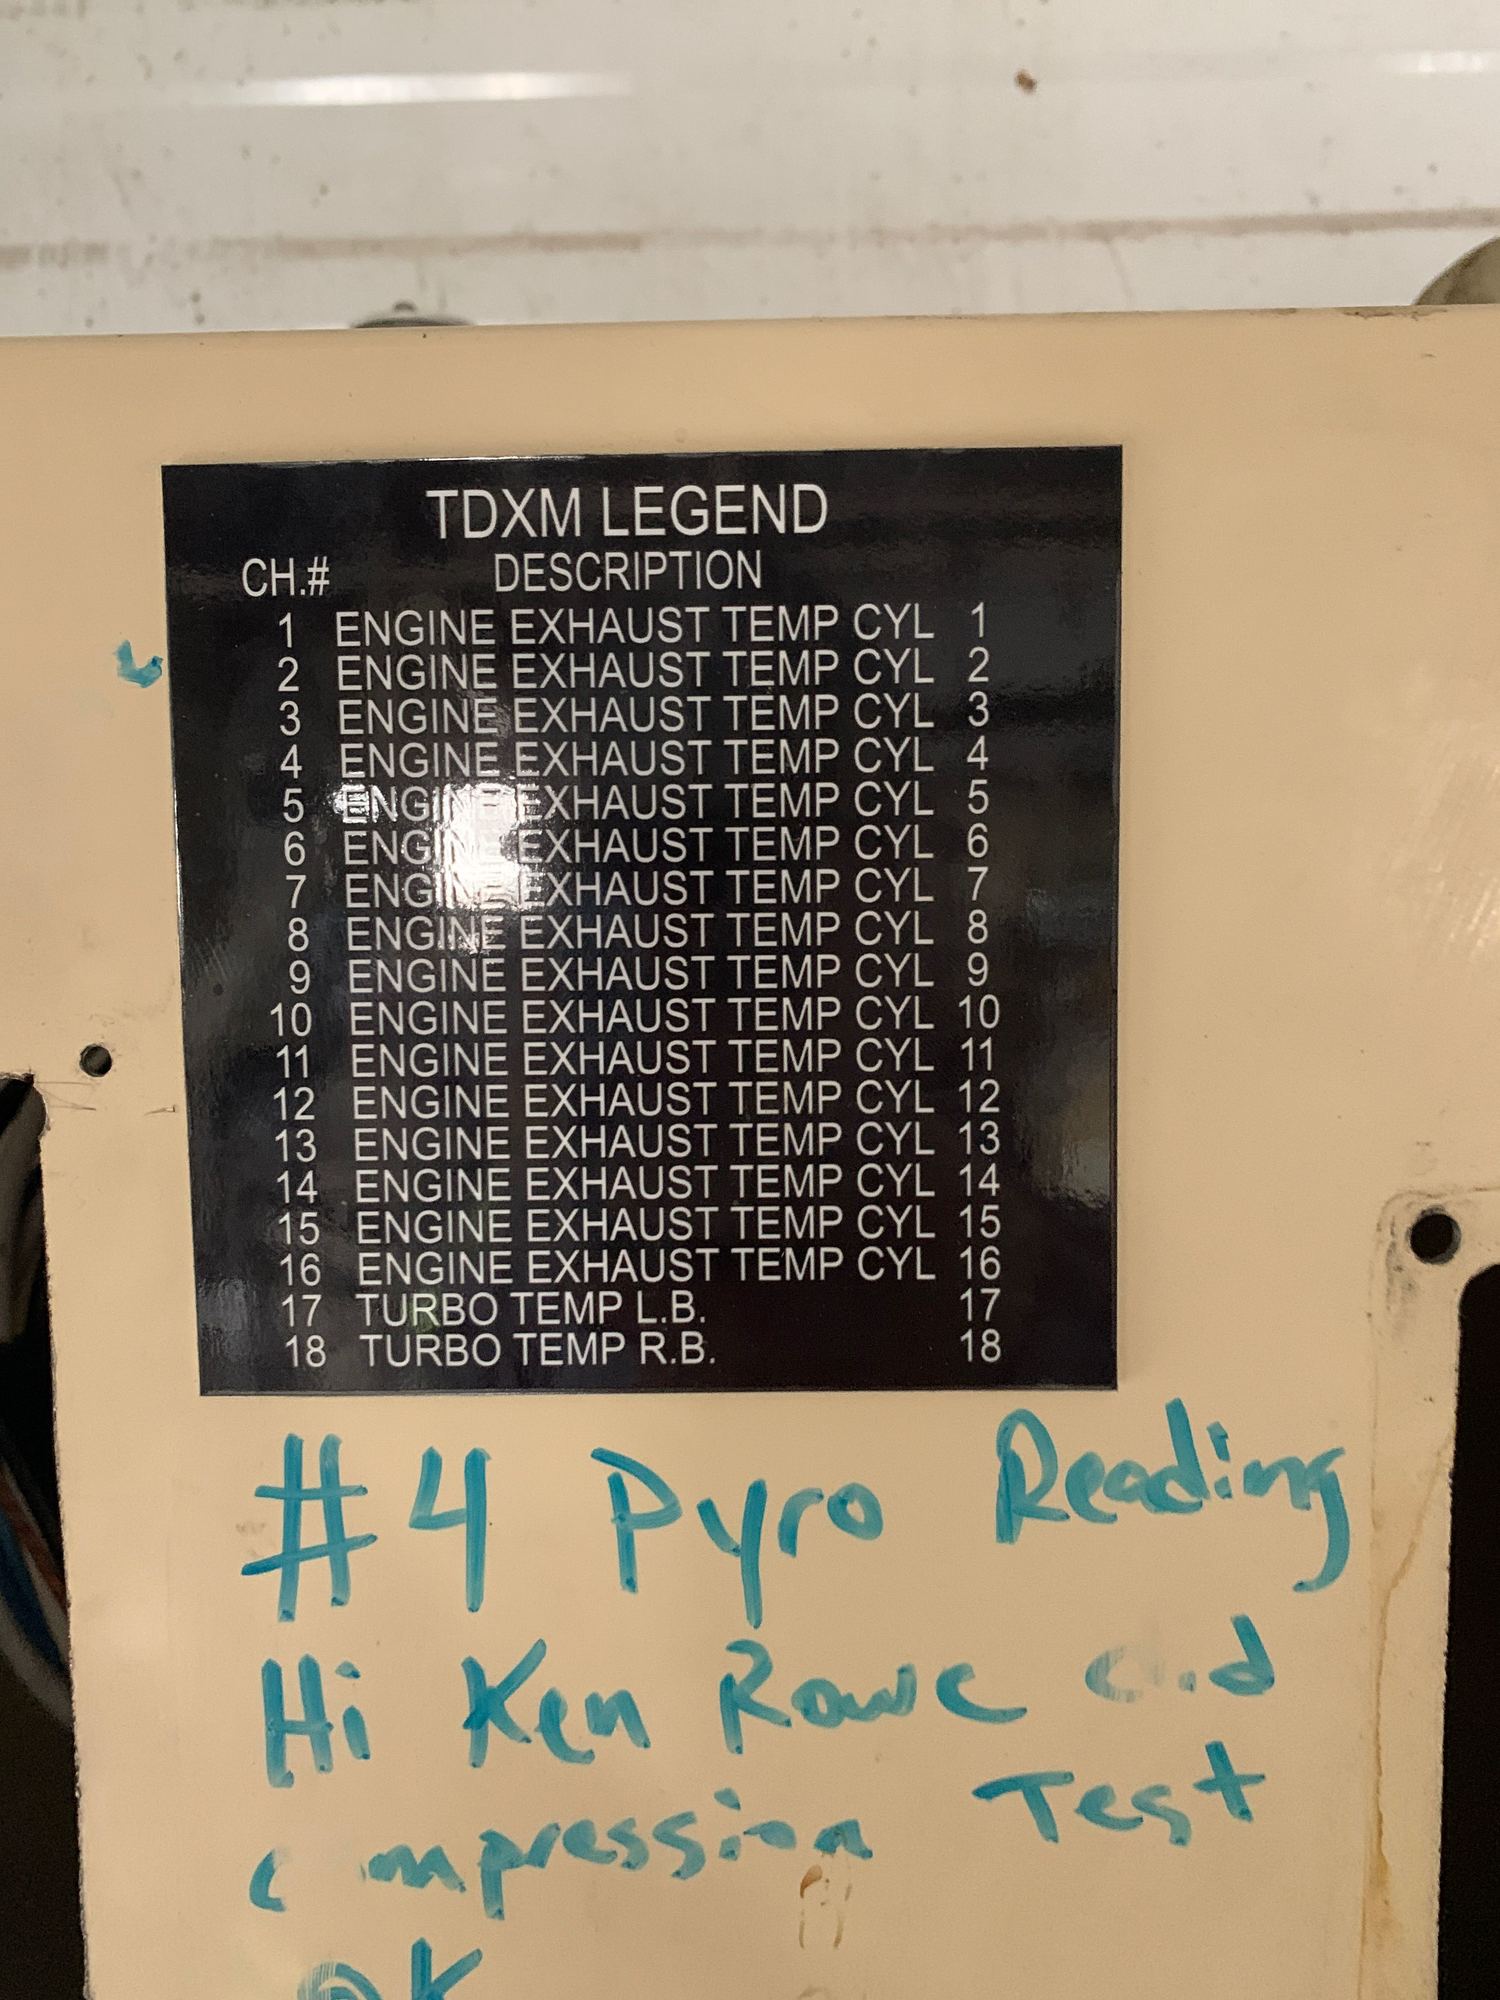 TDXM LEGEND
CH.# DESCRIPTION
1 ENGINE EXHAUST TEMP CYL 1
2 ENGINE EXHAUST TEMP CYL 2
3 ENGINE EXHAUST TEMP CYL 3
4 ENGINE EXHAUST TEMP CYL 4
5 ENGINE EXHAUST TEMP CYL 5
6 ENGINE EXHAUST TEMP CYL 6
7 ENGINE EXHAUST TEMP CYL 7
8 ENGINE EXHAUST TEMP CYL 8
9 ENGINE EXHAUST TEMP CYL 9
10 ENGINE EXHAUST TEMP CYL 10
11 ENGINE EXHAUST TEMP CYL 11
12 ENGINE EXHAUST TEMP CYL 12
13 ENGINE EXHAUST TEMP CYL 13
14 ENGINE EXHAUST TEMP CYL 14
15 ENGINE EXHAUST TEMP CYL 15
16 ENGINE EXHAUST TEMP CYL 16
17 TURBO TEMP L.B. 17
18 TURBO TEMP R.B. 18
#4 Pyro Reading
Hi Ken Rowe
compression Test
OK